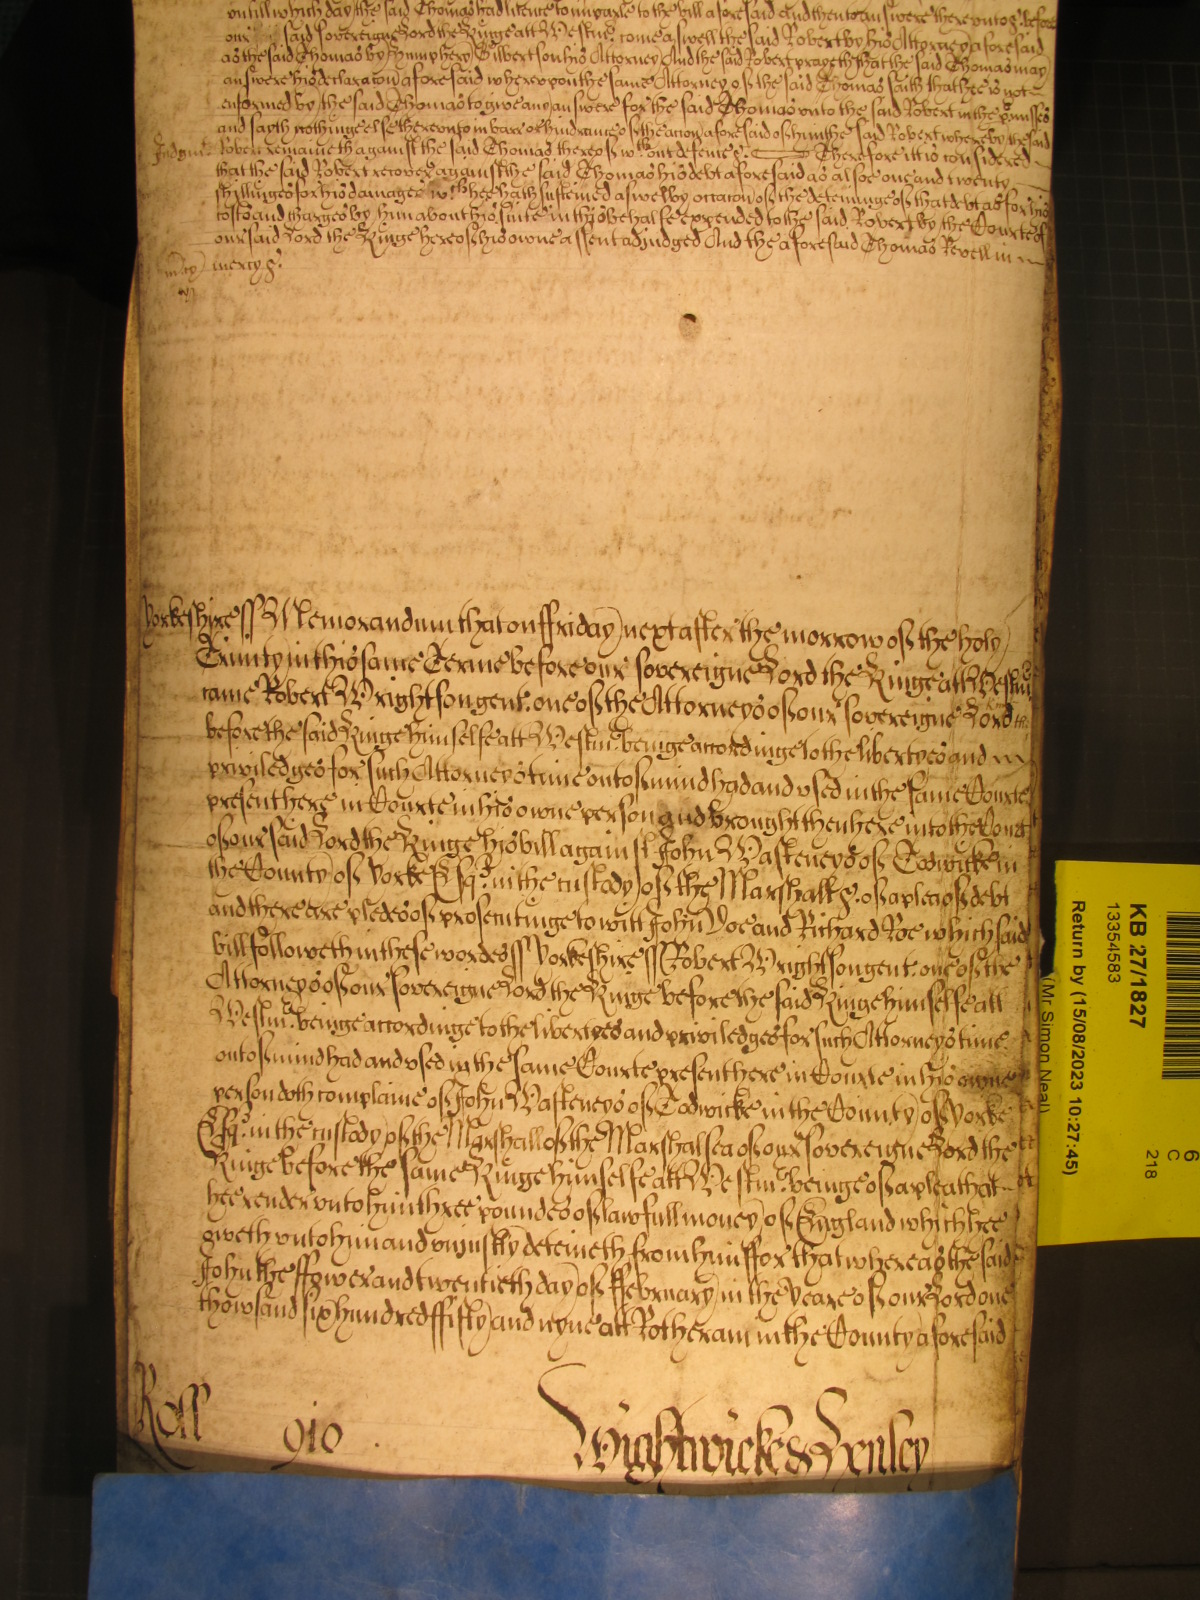 untill which day the said Thomas had licence to imparle to the bill aforesaid and then to answere thereunto &c before
our said sovereigne Lord the Kinge att Westmr. come aswell the said Robert by his Attorney aforesaid
as the said Thomas by Humphery Gilbertson his Attorney And the said Robert prayeth that the said Thomas may
answere his declaracon aforesaid whereupon the same Attorney of the said Thomas saith that hee is not
enformed by the said Thomas to give any answere for the said Thomas unto the said Robert in the p'misses
and sayth nothinge else thereunto in barr or hindrance of the accon aforesaid of him the said Robert whereby the said
Judgmt. Robert remaineth against the said Thomas thereof wthout defence &c. Therefore itt is considered
that the said Robert recover against the said Thomas his debt aforesaid as alsoe one and twenty
shillinges for his damages wch hee hath susteined aswell by occacon of the deteininge of that debt as for his
costs and charges by him about his suite in this behalfe expended to the said Robert by the Courte of
our said Lord the Kinge here of his owne assent adjudged And the aforesaid Thomas Revell in
m'cy mercy &c.
Yorkeshire ss Memorandum that on ffriday next after the morrow of the holy
Trinity in this same Terme before our sovereigne Lord the Kinge att Westmr.
came Robert Wrightson gent. one of the Attorneyes of our sovereigne Lord the
before the said Kinge himselfe att Westmr. beinge accordinge to the libertyes and
priviledges for such Attorneyes time out of mind had and used in the same Courte
present here in Courte in his owne person and brought then here into the Court
of our said Lord the Kinge his bill against John Wasteneys of Todwicke in
the County of Yorke Esqr. in the custody of the Marshall &c. of a plea of debt
and there are pledes of prosecutinge to witt John Doe and Richard Roe which said
bill followeth in these wordes ss Yorkeshire ss Robert Wrightson gent. one of the
Attorneyes of our sovereigne Lord the Kinge before the said Kinge himselfe att
Westmr. beinge accordinge to the libertyes and priviledges for such Attorneyes time
out of mind had and used in the same Courte present here in Courte in his owne
person doth complaine of John Wasteneys of Todwicke in the County of Yorke
Esqr. in the custody of the Marshall of the Marshalsea of our sovereigne Lord the
Kinge before the same Kinge himselfe att Westmr. beinge of a plea that
hee render unto him three poundes of lawfull money of England which hee
oweth unto him and unjustly deteineth from him ffor that whereas the said
John the ffower and twentieth day of ffebruary in the yeare of our Lord one
thowsand six hundred ffifty and nyne att Rotheram in the County aforesaid
Roll 910 Wightwicke & Henley
KB 27/1827
13354583
Return by (15/08/2023 10:27:45)
(Mr Simon Neal)
6
C
218